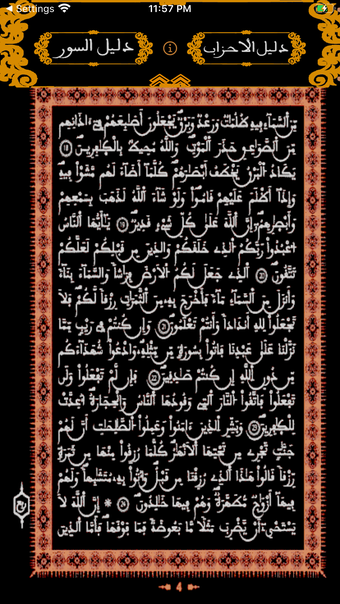 ← Settings 11:57 PM
دليل السور
دليل الاحزاب
مِّنَ اَ۬لسَّمَآءِ فِيهِ ظُلُمَٰتٌ وَرَعْدٌ وَبَرْقٌ يَجْعَلُونَ أَصَٰبِعَهُمْ فِےٓ ءَاذَانِهِم
مِّنَ اَ۬لصَّوَٰعِقِ حَذَرَ اَ۬لْمَوْتِ وَاللَّهُ مُحِيطٌ بِالْكٰفِرِينَ ١٨
يَكَادُ اُ۬لْبَرْقُ يَخْطَفُ أَبْصَٰرَهُمْ كُلَّمَآ أَضَآءَ لَهُم مَّشَوْاْ فِيهِ
وَإِذَآ أَظْلَمَ عَلَيْهِمْ قَامُواْ وَلَوْ شَآءَ اَ۬للَّهُ لَذَهَبَ بِسَمْعِهِمْ
وَأَبْصٰرِهِمْ إِنَّ اَ۬للَّهَ عَلَىٰ كُلِّ شَےْءٍ قَدِيرٌ ١٩ يَٰٓأَيُّهَا اَ۬لنَّاسُ
اُ۟عْبُدُواْ رَبَّكُمُ اُ۬لذِے خَلَقَكُمْ وَالذِينَ مِن قَبْلِكُمْ لَعَلَّكُمْ
تَتَّقُونَ ٢٠ اَ۬لذِے جَعَلَ لَكُمُ اُ۬لْأَرْضَ فِرَٰشاً وَالسَّمَآءَ بِنَآءً
وَأَنزَلَ مِنَ اَ۬لسَّمَآءِ مَآءً فَأَخْرَجَ بِهِۦ مِنَ اَ۬لثَّمَرَٰتِ رِزْقاً لَّكُمْ فَلَا
تَجْعَلُواْ لِلهِ أَندَاداً وَأَنتُمْ تَعْلَمُونَ ٢١ وَإِن كُنتُمْ فِے رَيْبٍ مِّمَّا
نَزَّلْنَا عَلَىٰ عَبْدِنَا فَاتُواْ بِسُورَةٍ مِّن مِّثْلِهِۦ وَادْعُواْ شُهَدَآءَكُم
مِّن دُونِ اِ۬للَّهِ إِن كُنتُمْ صَٰدِقِينَ ٢٢ فَإِن لَّمْ تَفْعَلُواْ وَلَن
تَفْعَلُواْ فَاتَّقُواْ اُ۬لنَّارَ اَ۬لتِے وَقُودُهَا اَ۬لنَّاسُ وَالْحِجَارَةُ أُعِدَّتْ
لِلْكٰفِرِينَ ٢٣ وَبَشِّرِ اِ۬لذِينَ ءَامَنُواْ وَعَمِلُواْ اُ۬لصَّٰلِحَٰتِ أَنَّ لَهُمْ
جَنَّٰتٍ تَجْرِے مِن تَحْتِهَا اَ۬لْأَنْهَٰرُ كُلَّمَا رُزِقُواْ مِنْهَا مِن ثَمَرَةٍ
رِّزْقاً قَالُواْ هَٰذَا اَ۬لذِے رُزِقْنَا مِن قَبْلُ وَأُتُواْ بِهِۦ مُتَشَٰبِهاً وَلَهُمْ
فِيهَآ أَزْوَٰجٌ مُّطَهَّرَةٌ وَهُمْ فِيهَا خَٰلِدُونَ ٢٤ ۞ إِنَّ اَ۬للَّهَ لَا
يَسْتَحْيِۦٓ أَنْ يَّضْرِبَ مَثَلًا مَّا بَعُوضَةً فَمَا فَوْقَهَا فَأَمَّا اَ۬لذِينَ
4